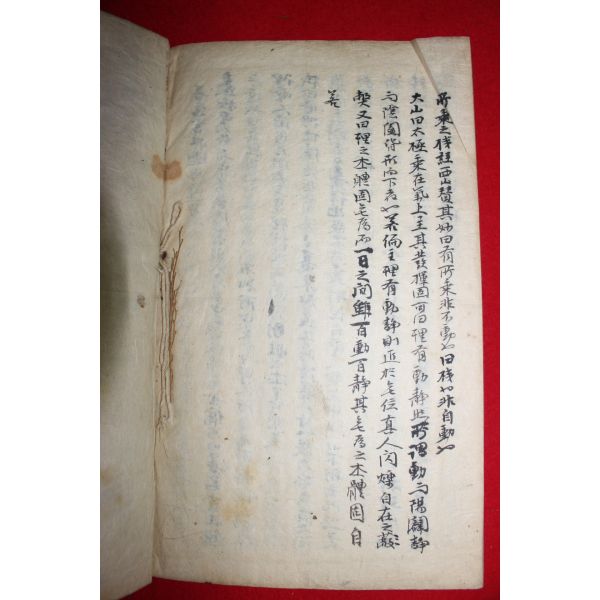 所乘之機註西山贊其妙曰有所乘非不動也曰機也非自動也
大山曰太極乘在氣上主其發揮固可曰理有動靜然所謂動而陽闢靜
而陰闔終形而下者也若偏主理有動靜則近於無位眞人閃爍自在之蔽
矣又曰理之本體固無爲而一日之間雖百動百靜其無爲之本體固自
若